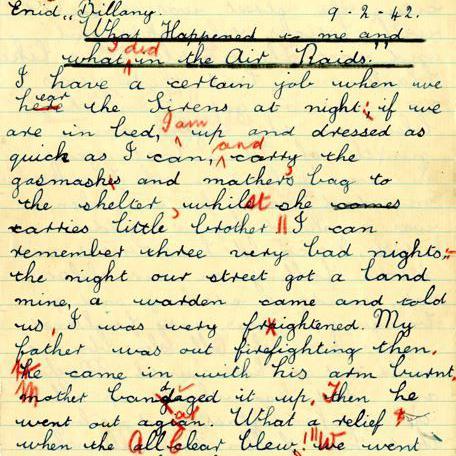 Enid Billany. 9-2-42.
What Happened to me and
what I did in the Air Raids."
I have a certain job when we
hear the Sirens at night; if we
are in bed, I am up and dressed as
quick as I can, and carry the
gasmasks and mathers bag to
the shelter, whilst she comes
carries little brother || I can
remember three very bad nights,:-
the night our street got a land
mine, a warden came and told
us, I was very fraightened. My
father was out firefighting then.
He came in with his arm burnt.
Mother bandaged it up. Then he
went out again. What a relief
when the All Clear blew!!! We went